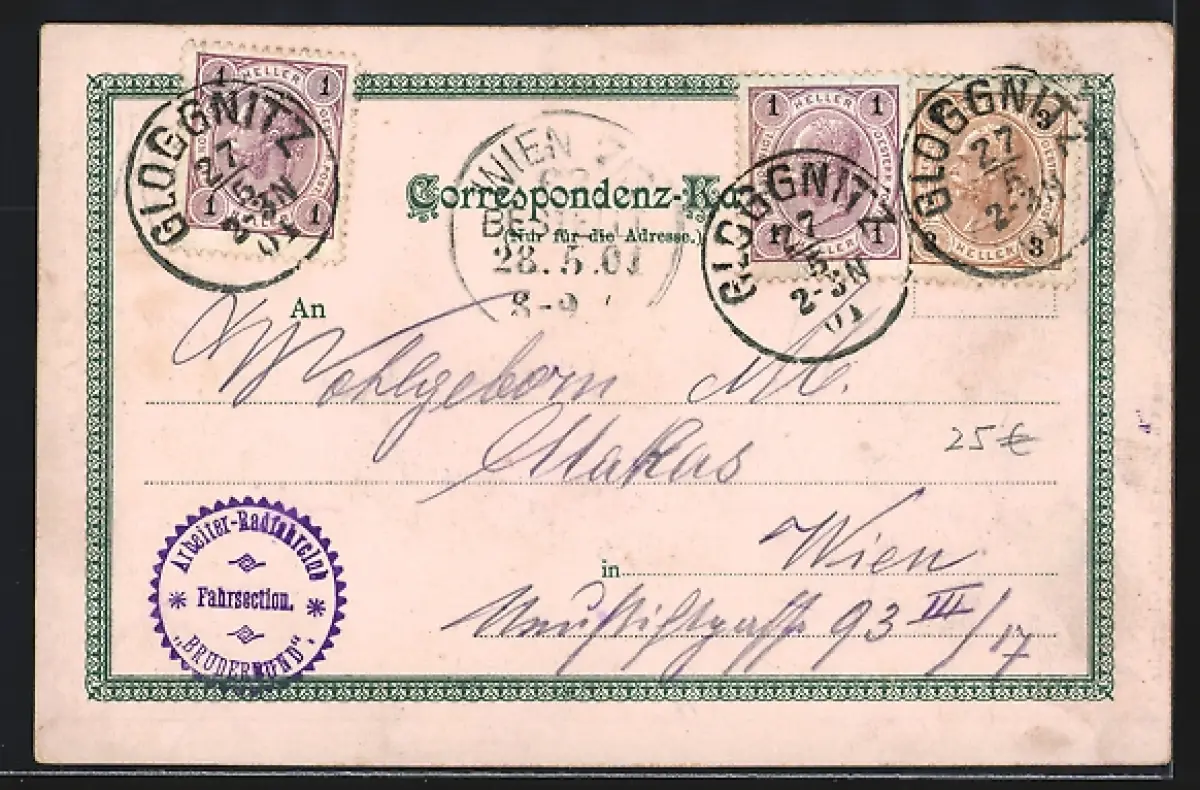 1 HELLER 1
1 1
GLOGGNITZ
27/5
2-3N
01
WIEN
BESTELLT
28.5.01
8-9
1 HELLER 1
1 HELLER 1
GLOGGNITZ
27/5
2-3N
01
3
3 HELLER 3
GLOGGNITZ
27/5
2-3N
01
Correspondenz-Ka
(Nur für die Adresse.)
An
Wohlgeborn
Makas
25€
in Wien
Neustiftgasse 93 III/17
Arbeiter-Radfahrclub
Fahrsection.
„BRUDERBUND“.